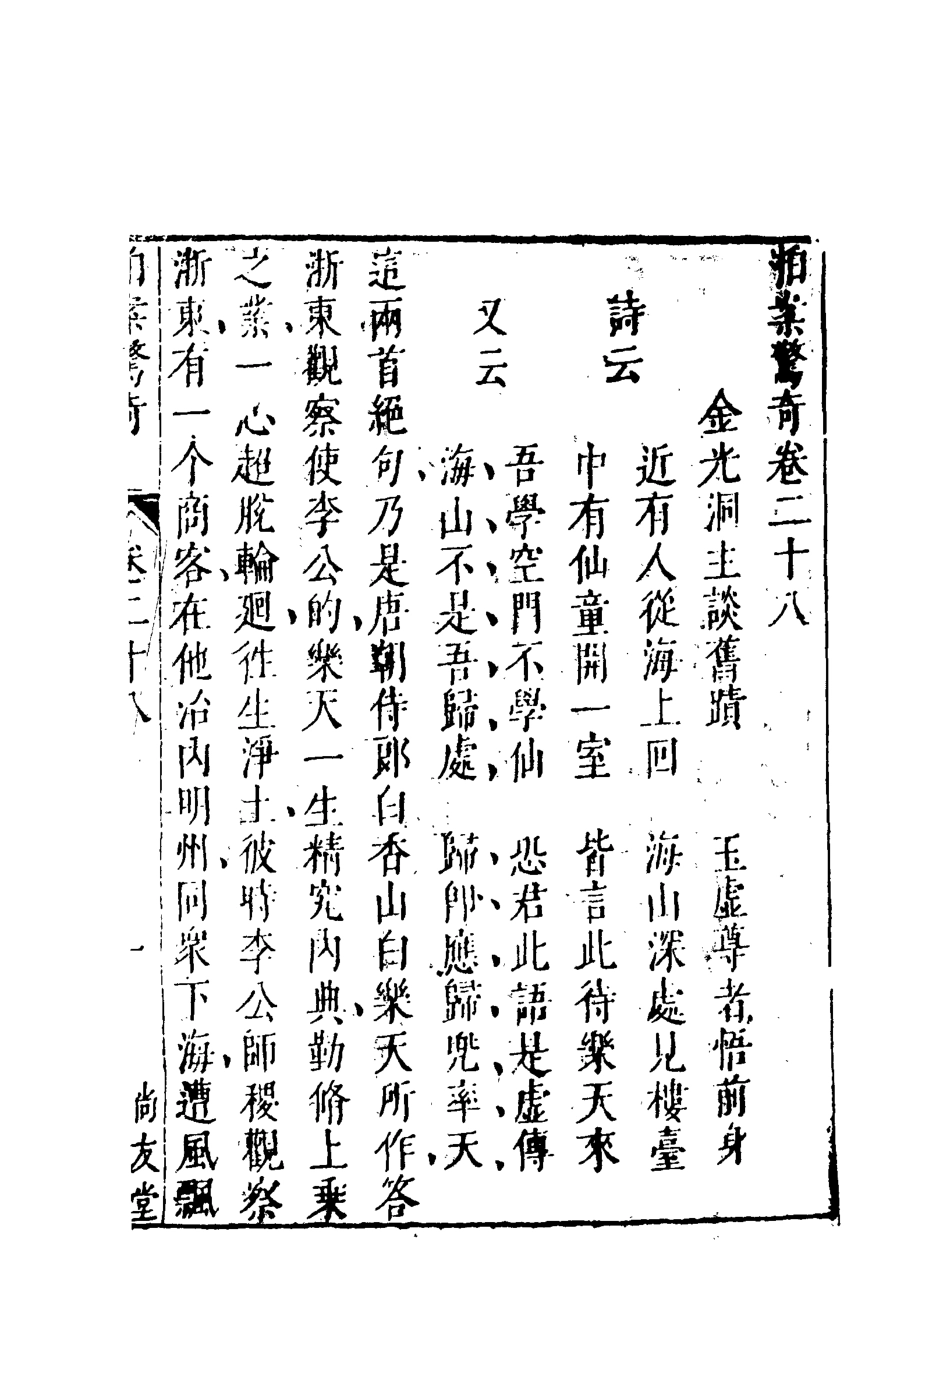 拍案驚奇卷二十八
金光洞主談舊蹟　玉虛尊者悟前身
詩云
近有人從海上回　海山深處見樓臺
中有仙童開一室　皆言此待樂天來
又云
吾學空門不學仙　恐君此語是虛傳
海山不是吾歸處　歸即應歸兜率天
這兩首絕句乃是唐朝侍郎白香山白樂天所作答
浙東觀察使李公的樂天一生精究內典勤脩上乗
之業一心超脫輪廻徃生淨土彼時李公師稷觀察
浙東有一个商客在他治內明州同衆下海遭風飄
拍案驚奇　卷二十八　一　尚友堂